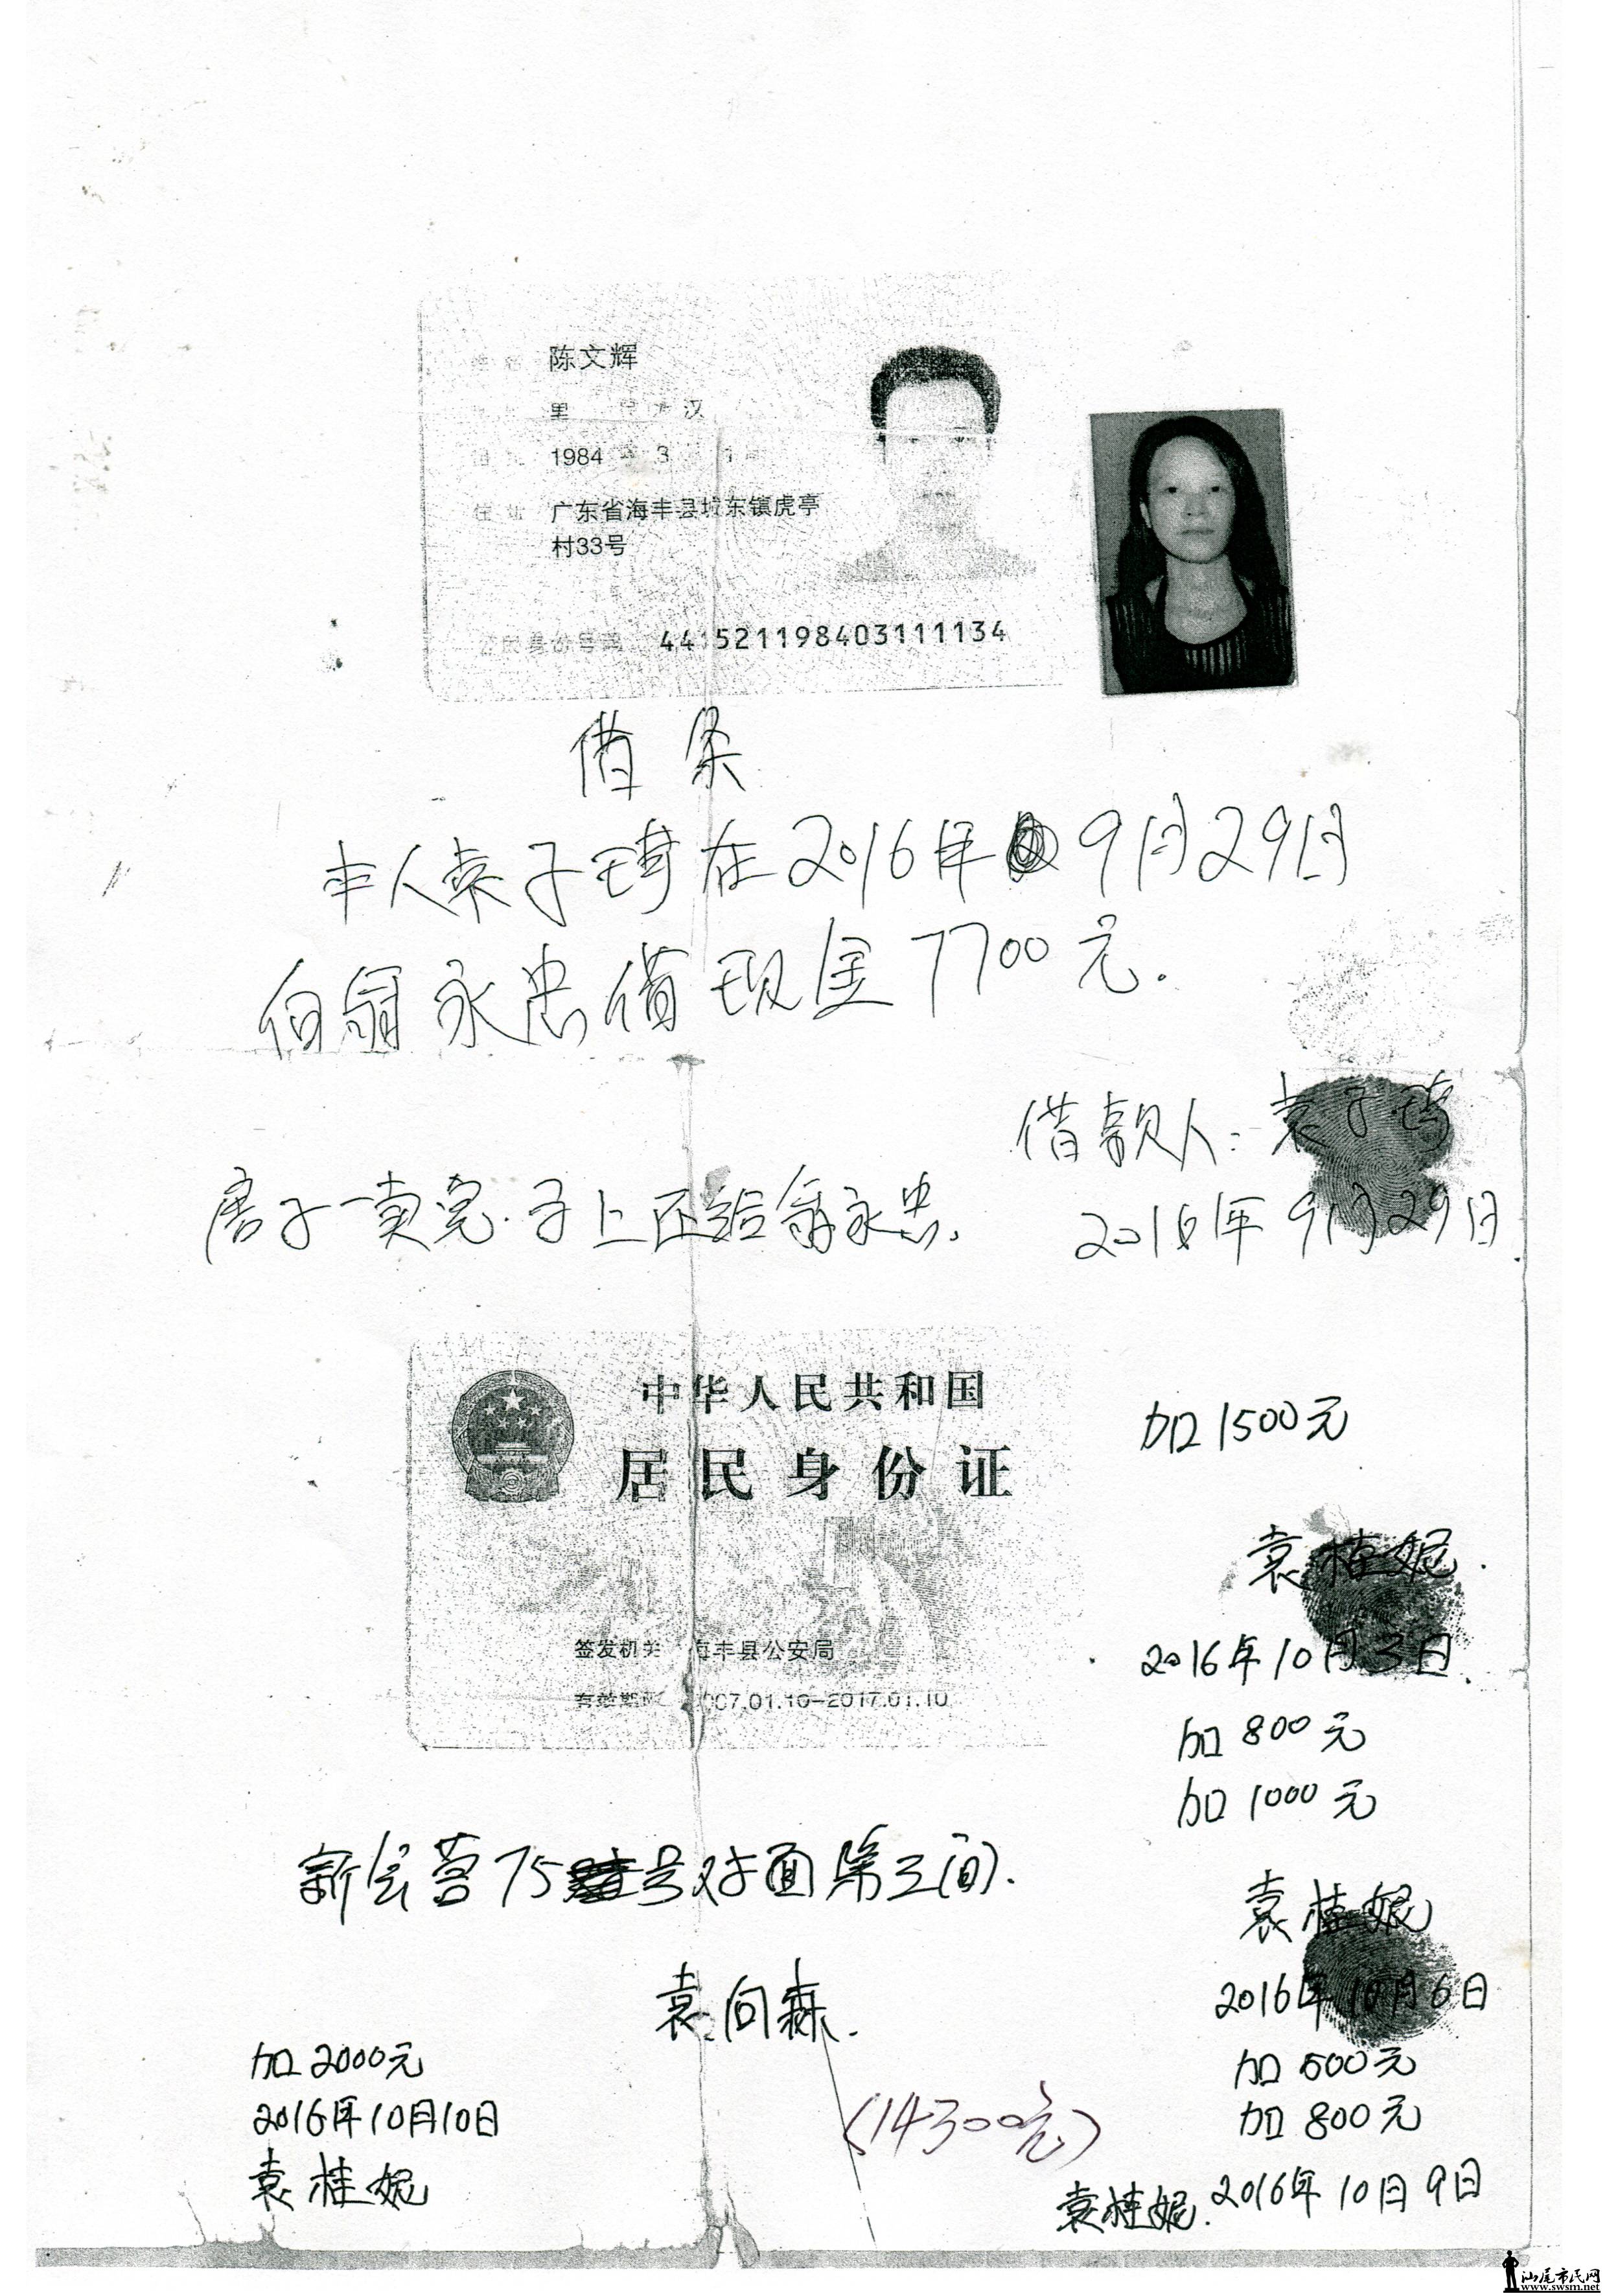 陈文辉
汉
1984 3
广东省海丰县城东镇虎亭
村33号
公民身份号码 441521198403111134
借条
本人袁子琦在2016年9月29日
向翁永忠借现金7700元.
借款人:袁子琦
房子一卖完.子上还给翁永忠.
2016年9月29日
中华人民共和国
居民身份证
签发机关 海丰县公安局
有效期限 2007.01.10-2017.01.10
加1500元
袁桂妮.
2016年10月3日.
加800元
加1000元
新会营75号对面第三间.
袁桂妮
2016年10月6日
袁向森.
加500元
加800元
袁桂妮.2016年10月9日
加2000元
2016年10月10日
袁桂妮
(14300元)
汕尾市民网
www.swsm.net